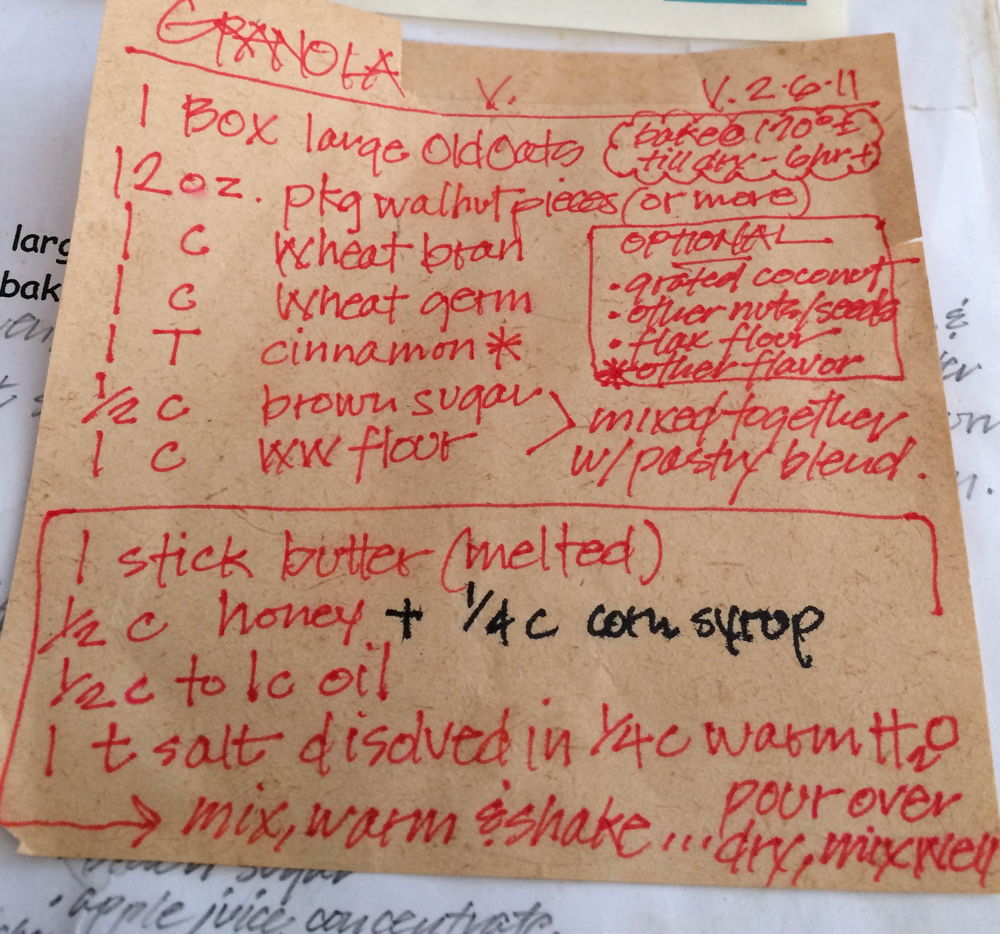 GRANOLA V. V. 2-6-11
1 Box large Old Oats (bake @ 170°±
till dry - 6hr±)
12 oz. pkg walnut pieces (or more)
1 C Wheat bran
1 C Wheat germ
1 T cinnamon *
1/2 C brown sugar
1 C WW flour
mixed together
w/ pastry blend.
OPTIONAL
• grated coconut
• other nuts/seeds
• flax flour
* other flavor
1 stick butter (melted)
1/2 C honey + 1/4 c corn syrop
1/2 c to 1c oil
1 t salt disolved in 1/4 c warm H2O
→ mix, warm & shake ... pour over
dry, mix well
larg
bak
&
• apple juice concentrate.